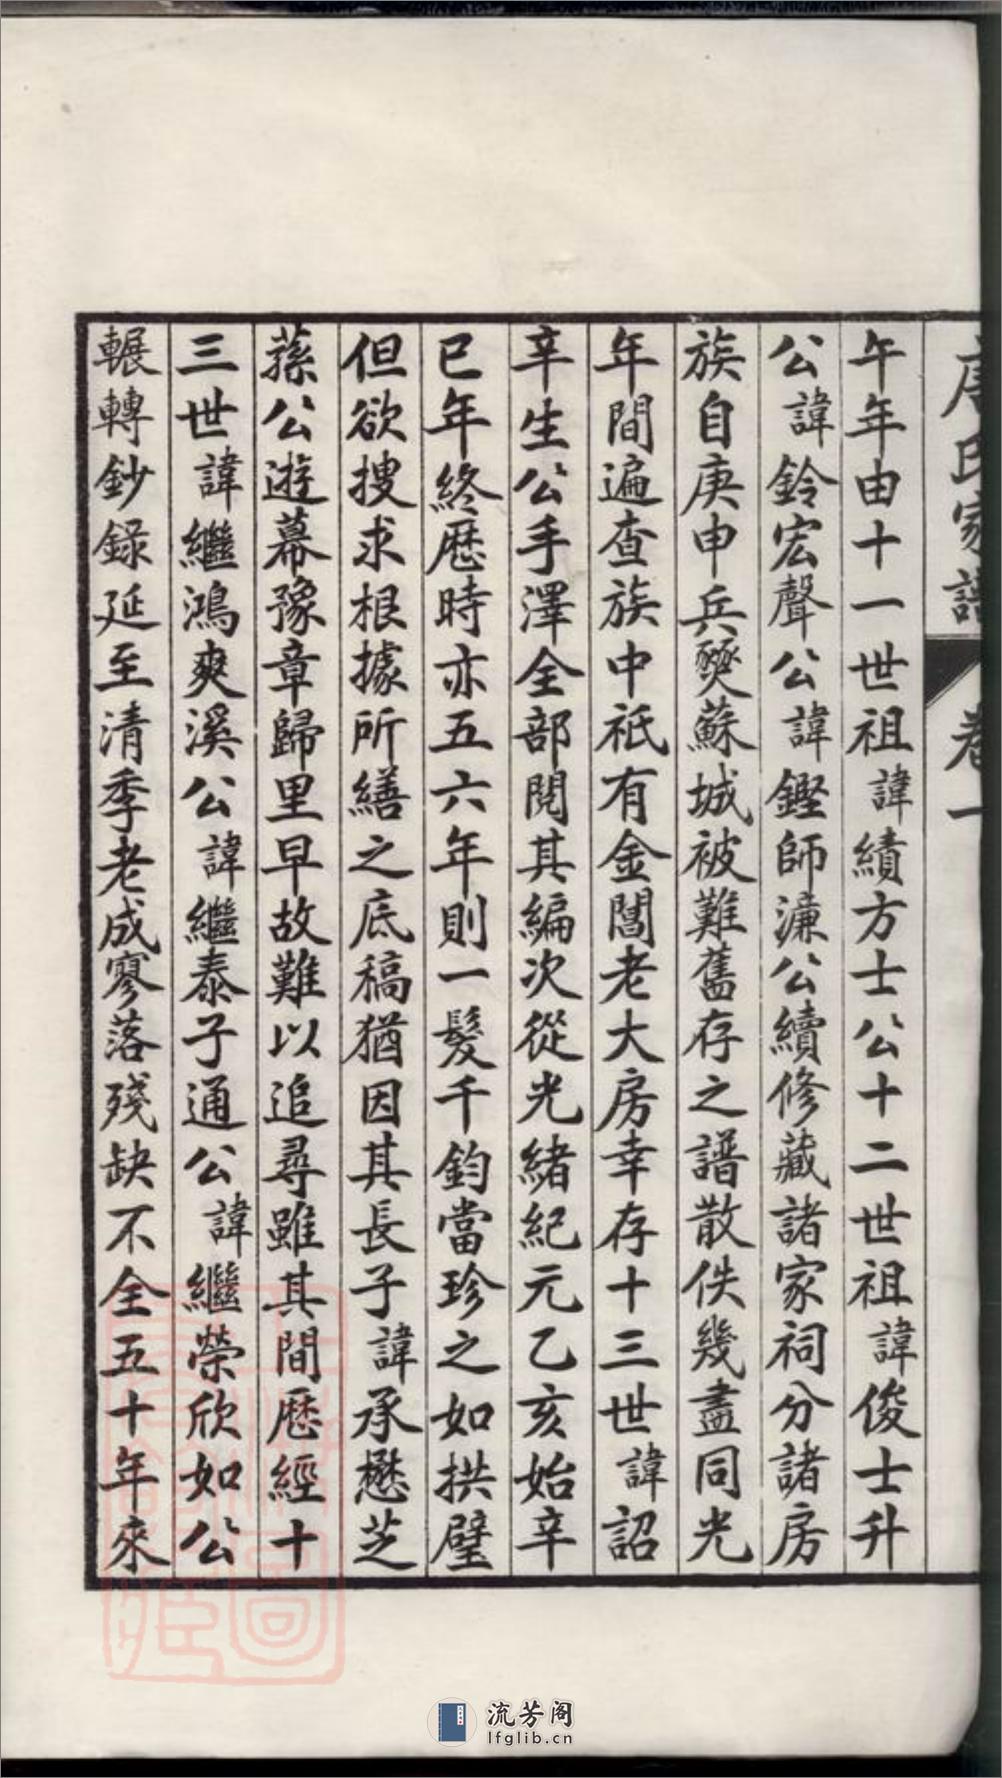 唐氏家譜 卷一
午年由十一世祖諱績方士公十二世祖諱俊士升
公諱鈴宏聲公諱鏗師濂公續修藏諸家祠分諸房
族自庚申兵燹蘇城被難舊存之譜散佚幾盡同光
年間遍查族中祇有金閶老大房幸存十三世諱詔
辛生公手澤全部閱其編次從光緒紀元乙亥始辛
巳年終歷時亦五六年則一髮千鈞當珍之如拱璧
但欲搜求根據所繕之底稿猶因其長子諱承懋芝
蓀公遊幕豫章歸里早故難以追尋雖其間歷經十
三世諱繼鴻爽溪公諱繼泰子通公諱繼榮欣如公
輾轉鈔錄延至清季老成寥落殘缺不全五十年來
流芳阁
lfglib.cn